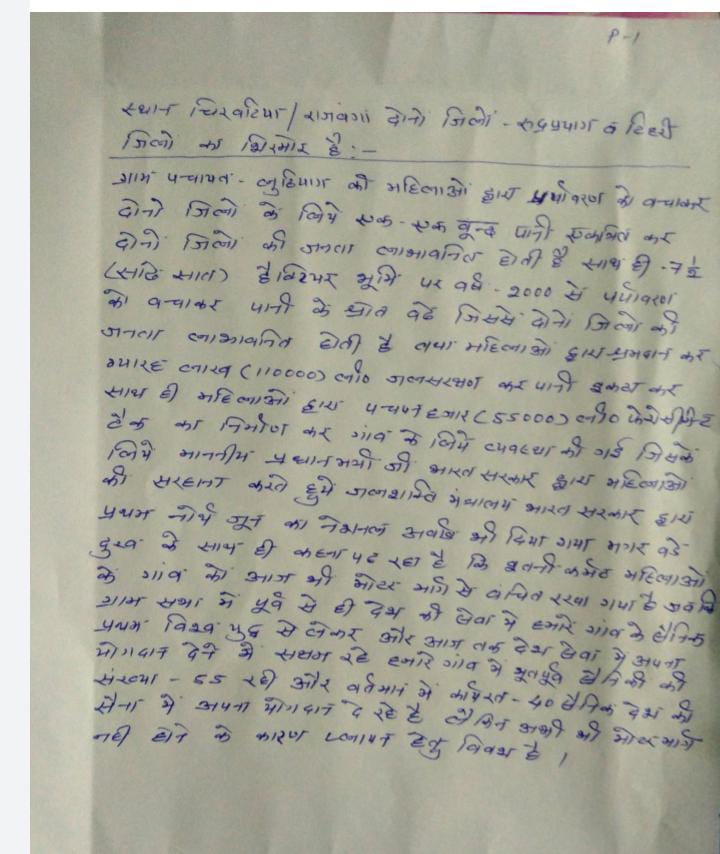 P-1
स्थान चिरबटिया/राजबंगा दोनो जिलों - रूद्रप्रयाग व टिहरी
जिलो का शिरमोर है:-
ग्राम पन्चायत - लुठियाग की महिलाओं द्वारा पर्यावरण को बचाकर
दोनो जिलों के लिये एक-एक बून्द पानी एकत्रित कर
दोनो जिलों की जनता लाभावनित होती है साथ ही - 7½
(साढे सात) हैक्टियर भूमि पर वर्ष - 2000 से पर्यावरण
को बचाकर पानी के श्रोत बढे जिससे दोनो जिलो की
जनता लाभावनित होती है तथा महिलाओ द्वारा श्रमदान कर
ग्यारह लाख (110000) ली० जलसरक्षण कर पानी इकठा कर
साथ ही महिलाओं द्वारा पचपन हजार (55000) ली०
टैंक का निर्माण कर गांव के लिये व्यवस्था की गई जिसके
लिये माननीय प्रधानमंत्री जी भारत सरकार द्वारा महिलाओं
की सरहाना करते हुये जलशक्ति मंत्रालय भारत सरकार द्वारा
प्रथम नोर्थ जून का नेशनल अवार्ड भी दिया गया मगर बडे
दुख के साथ ही कहना पड रहा है कि इतनी कर्मठ महिलाओ
के गांव को आज भी मोटर मार्ग से वंचित रखा गया है जबकि
ग्राम सभा में पूर्व से ही देश की सेवा मे हमारे गांव के सैनिक
प्रथम विश्व युद्ध से लेकर और आज तक देश सेवा मे अपना
योगदान देने में सक्षम रहे हमारे गांव में भूतपूर्व सैनिकों की
संख्या - 55 रही और वर्तमान में कार्यरत - 40 सैनिक देश की
सेना में अपना योगदान दे रहे है लेकिन अभी भी मोटर मार्ग
नही होने के कारण प्लायन हेतु विवश है ।